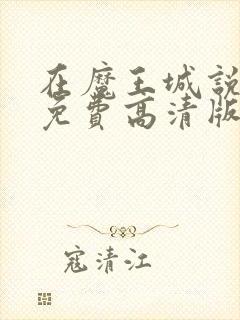 在魔王城說
免費高清版
寇清江